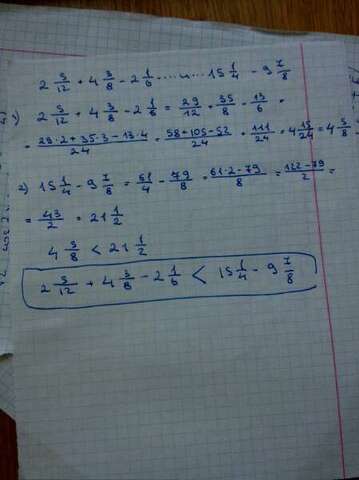 2 5/12 + 4 3/8 - 2 1/6 ........ 15 1/4 - 9 7/8
1) 2 5/12 + 4 3/8 - 2 1/6 = 29/12 + 35/8 - 13/6 =
= 29·2+35·3-13·4/24 = 58+105-52/24 = 111/24 = 4 15/24 = 4 5/8
2) 15 1/4 - 9 7/8 = 61/4 - 79/8 = 61·2-79/8 = 122-79/2 =
= 43/2 = 21 1/2
4 5/8 < 21 1/2
2 5/12 + 4 3/8 - 2 1/6 < 15 1/4 - 9 7/8